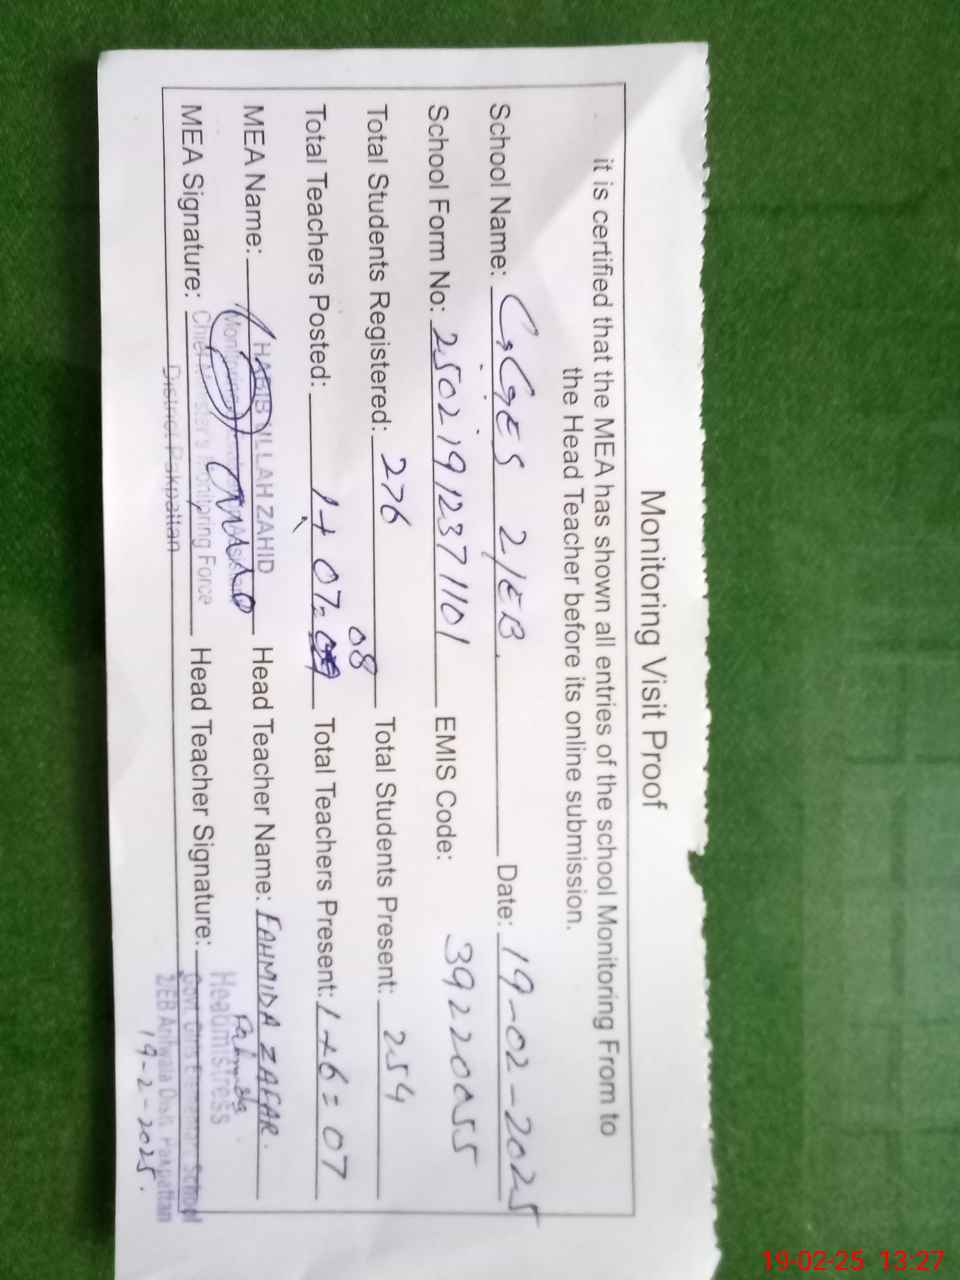 Monitoring Visit Proof
it is certified that the MEA has shown all entries of the school Monitoring From to
the Head Teacher before its online submission.
School Name: GGES 2/EB. Date: 19-02-2025
School Form No: 25021912371101 EMIS Code: 39220055
Total Students Registered: 276 Total Students Present: 254
08
Total Teachers Posted: 1+07= Total Teachers Present: 1+6=07
MEA Name: HABIB ULLAH ZAHID Head Teacher Name: FAHMIDA ZAFAR.
MEA Signature: Chief Minister's Monitoring Force Head Teacher Signature: Fahmida
District Pakpattan
Headmistress
Govt. Girls Elementary School
2/EB Arifwala Distt. Pakpattan
19-2-2025.
19-02-25 13:27